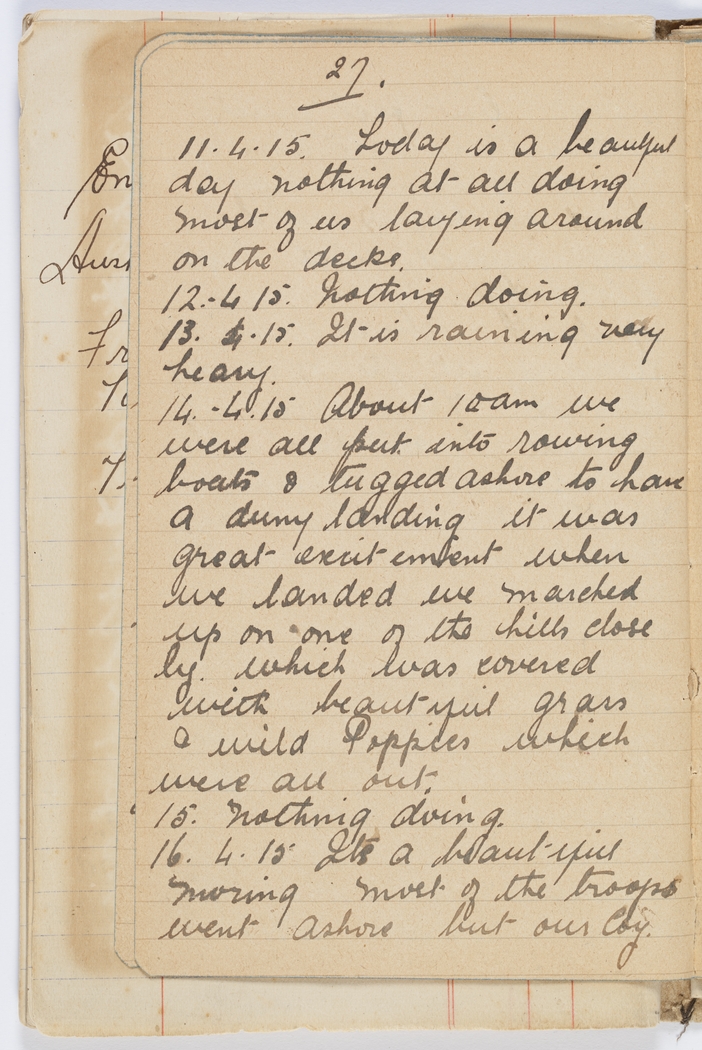 27.
11.4.15. Today is a beautiful
day nothing at all doing
most of us laying around
on the decks.
12.-4 15. Nothing doing.
13. 4.15. It is raining very
heavy.
14.-4.15 About 10am we
were all put into rowing
boats & tugged ashore to have
a dumy landing it was
great excitement when
we landed we marched
up on one of the hills close
by. which was covered
with beautiful grass
& wild Poppies which
were all out.
15. Nothing doing.
16. 4.15 Its a beautiful
morning most of the troops
went ashore but our Coy.